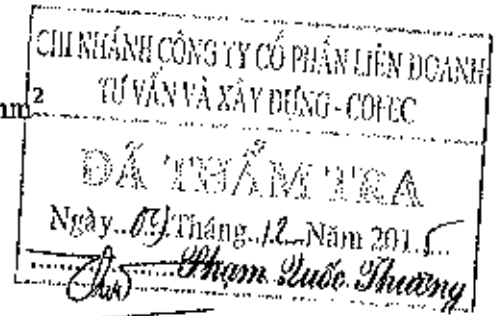 CHI NHÁNH CÔNG TY CỔ PHẦN LIÊN DOANH
TƯ VẤN VÀ XÂY DỰNG - COFEC
mm²
ĐÃ THẨM TRA
Ngày..04.Tháng..12..Năm 2015
Phạm Quốc Thương